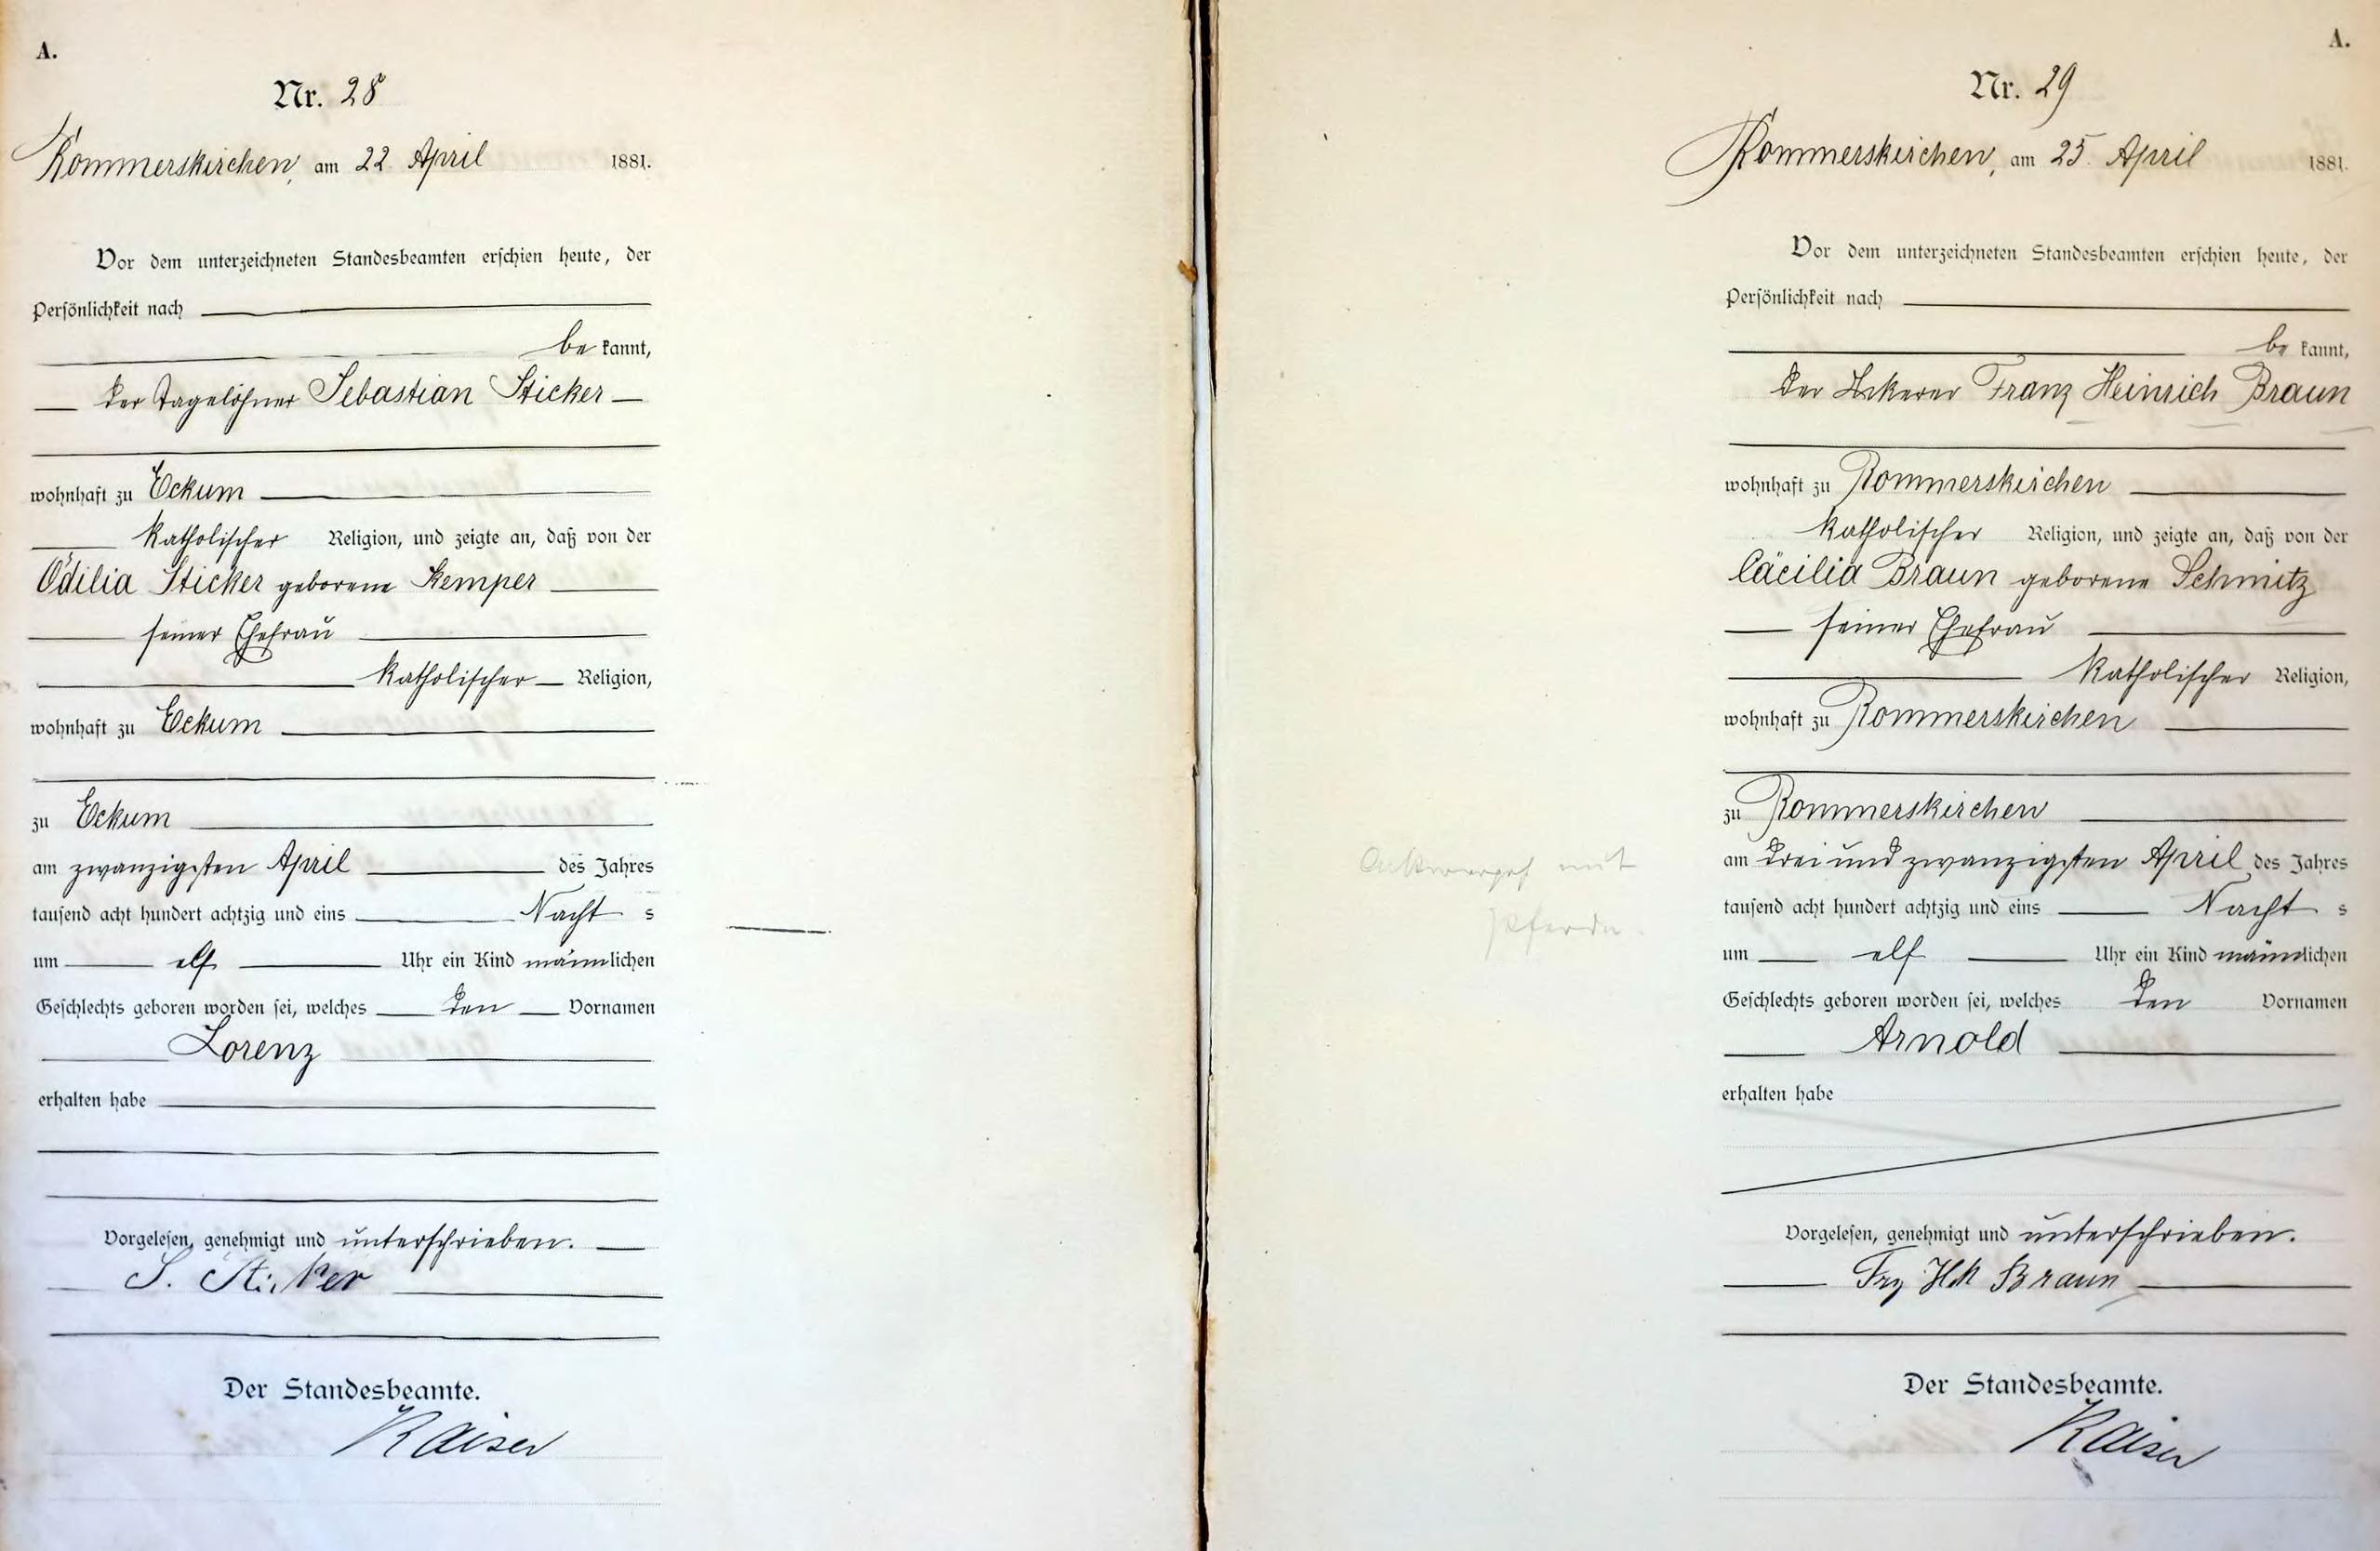 A.
Nr. 28
Rommerskirchen, am 22. April 1881.
Vor dem unterzeichneten Standesbeamten erschien heute, der
Persönlichkeit nach
be kannt,
der Tagelöhner Sebastian Sticker
wohnhaft zu Eckum
katholischer Religion, und zeigte an, daß von der
Odilia Sticker geborene Kemper
seiner Ehefrau
katholischer Religion,
wohnhaft zu Eckum
zu Eckum
am zwanzigsten April des Jahres
tausend acht hundert achtzig und eins Nacht s
um elf Uhr ein Kind männlichen
Geschlechts geboren worden sei, welches den Vornamen
Lorenz
erhalten habe
Vorgelesen, genehmigt und unterschrieben.
S. Sticker
Der Standesbeamte.
Kaiser
A.
Nr. 29
Rommerskirchen, am 25. April 1881.
Vor dem unterzeichneten Standesbeamten erschien heute, der
Persönlichkeit nach
be kannt,
der Ackerer Franz Heinrich Braun
wohnhaft zu Rommerskirchen
katholischer Religion, und zeigte an, daß von der
Cäcilia Braun geborene Schmitz
seiner Ehefrau
katholischer Religion,
wohnhaft zu Rommerskirchen
zu Rommerskirchen
am drei und zwanzigsten April des Jahres
tausend acht hundert achtzig und eins Nacht s
um elf Uhr ein Kind männlichen
Geschlechts geboren worden sei, welches den Vornamen
Arnold
erhalten habe
mit
Pferde
Vorgelesen, genehmigt und unterschrieben.
Frz Hch Braun
Der Standesbeamte.
Kaiser